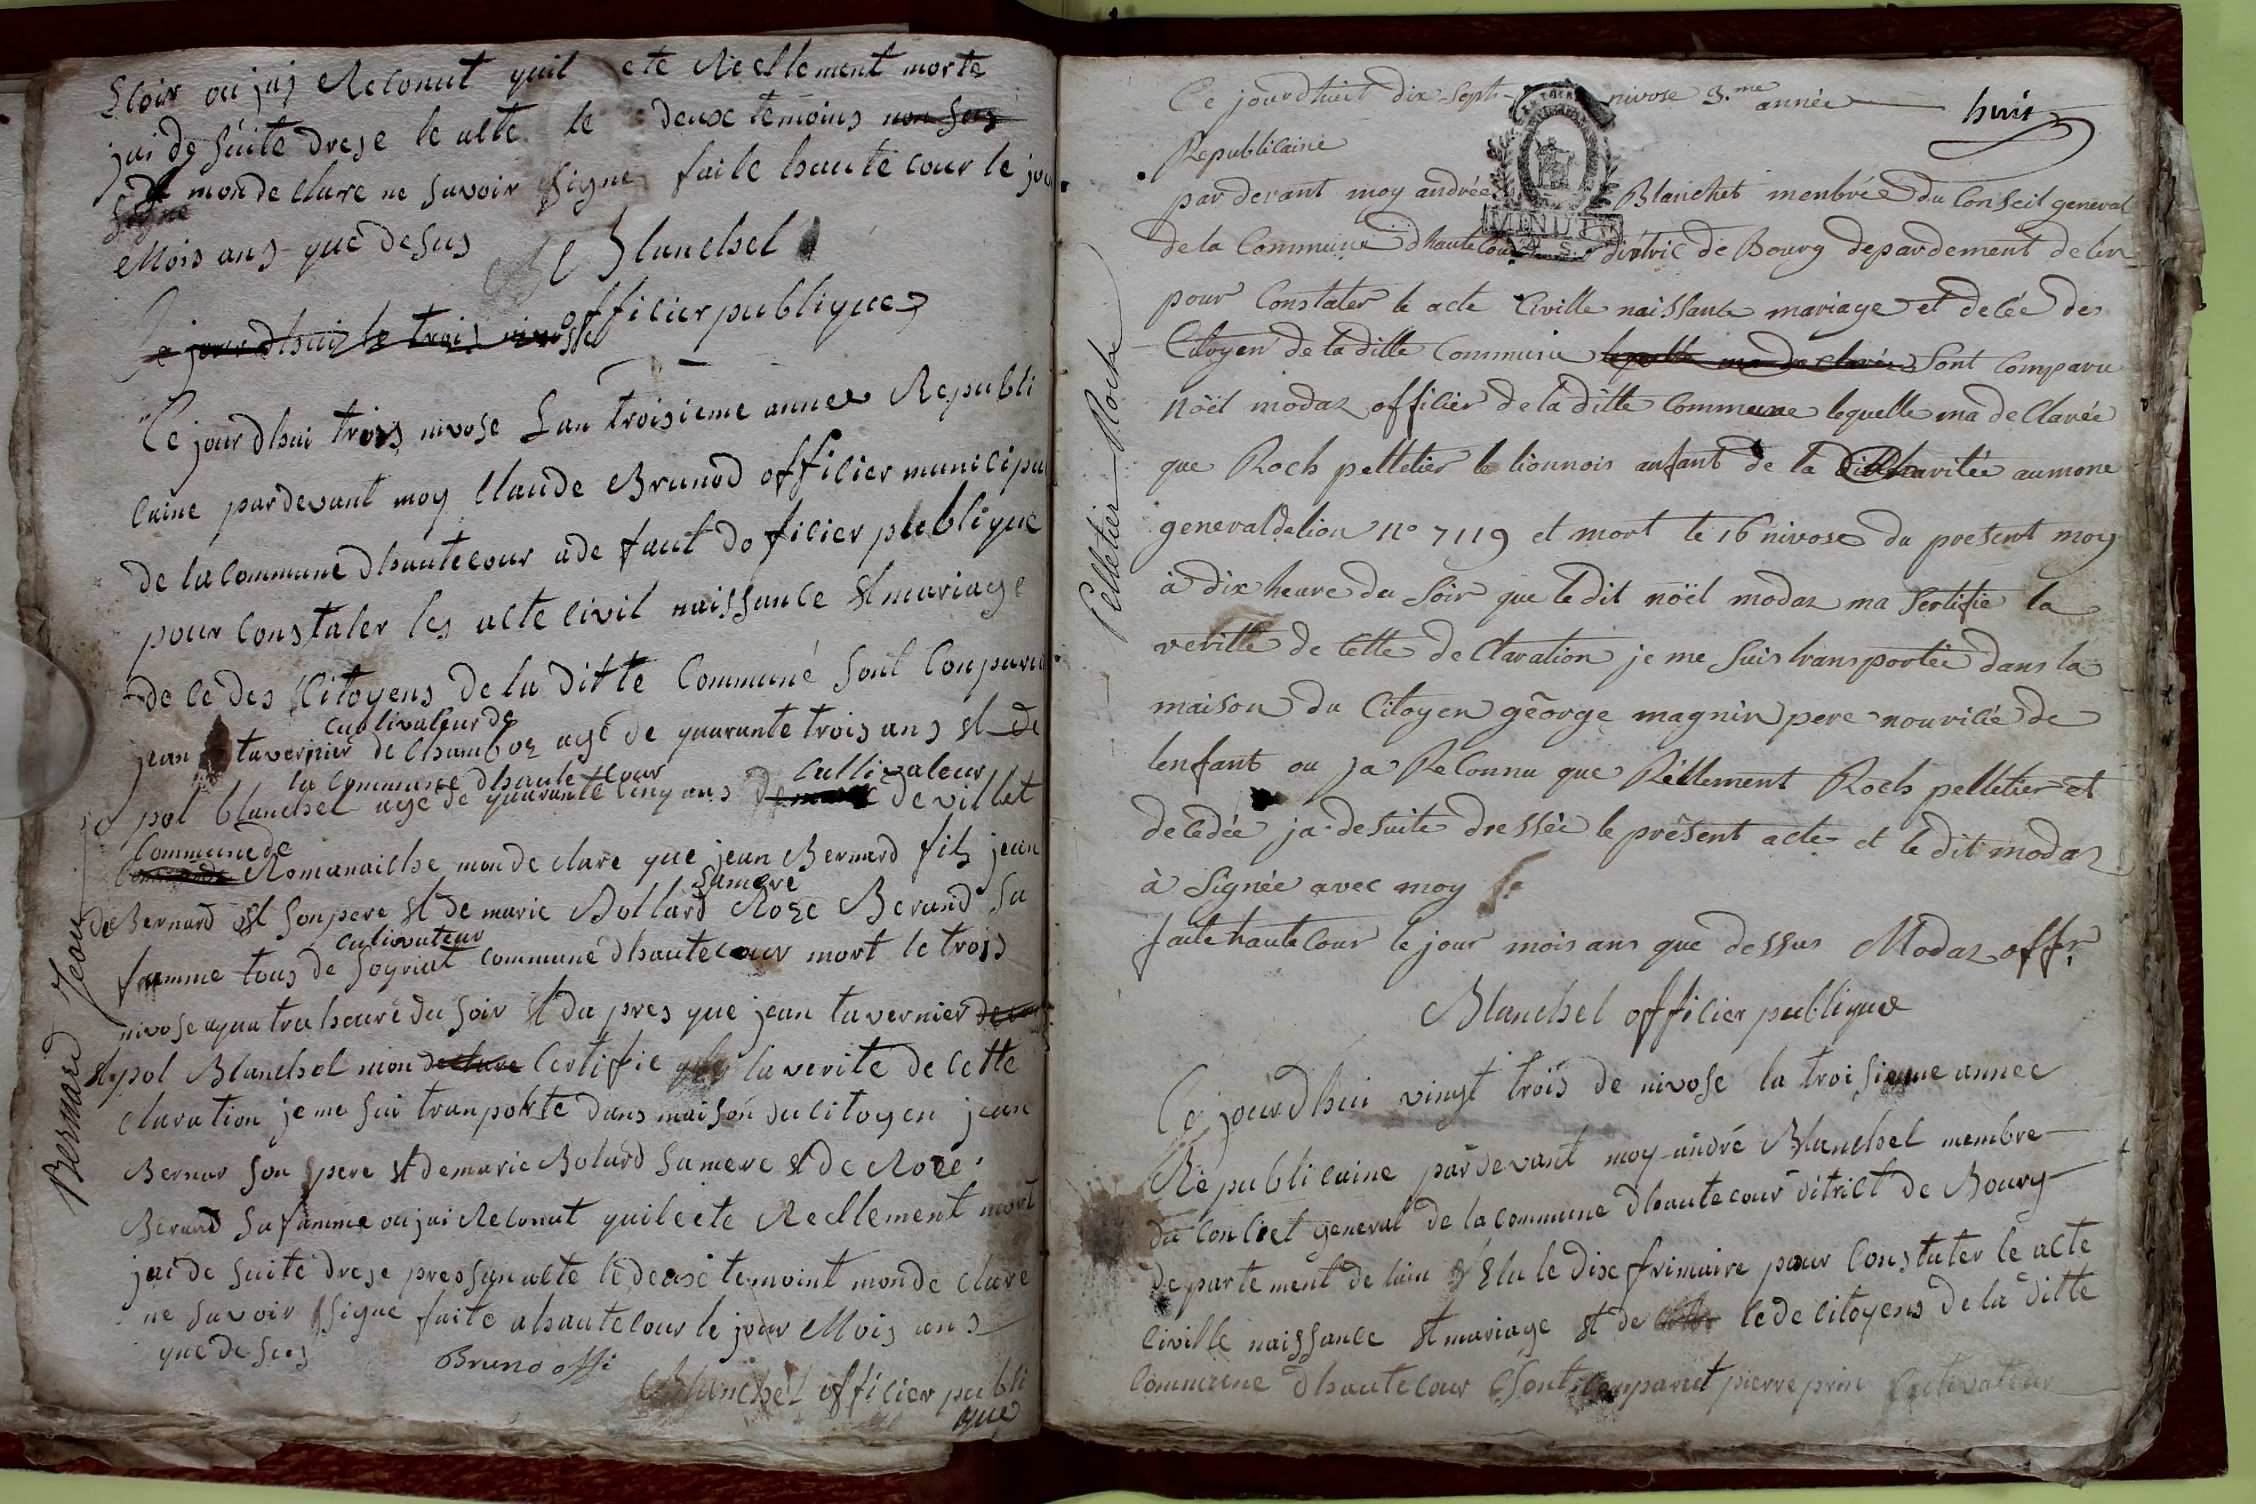 Sloir ou jai Reconut quil ete Reellement morte
jai de suite drese le alte le deux temoins non sus
signe monde clare ne savoir signe faite haute cour le jou
Mois ans que desus
Blanchel
officier publique
Ce jourdhui le trois nivosse
Ce jourdhui trois nivose Lan troisieme annee Republi
caine pardevant moy Claude Brunod officier municipa
de la commune dhautecour a de faut do ficier publique
pour constater les alte civil naissance et mariage
de ce des Citoyens de la ditte Communé sont conparu
cultivateur de
jean tavernier de Chamboz agé de quarante trois ans et de
la commune dhaute cour cultivateur
pol blanchel agé de quarante cinq ans de villet
Commune de
Romanaiche monde clare que jean Bernard fils jean
samere
de Bernard et son pere et de marie Bollard Roze Berand sa
cultivateur
famme tous de Soyriat commune dhautecour mort le trois
nivose aquatra heure du soir et da pres que jean tavernier
et pol Blanchel mon declare Certifie la verite de cette
claration je me sui tranporte dans maison du citoyen jean
Bernar son pere et de marie Bolard samere et de Roze
Berard sa famme ou jai Reconut quil ete Reellement mort
jai de suite drese pressan alte le deux temoint monde clare
ne savoir signe faite a hautecour le jour Mois ans
que desus
Bruno offi
Blanchel officier publi
que
Bernard Jean
Ce jourdhuit dix-sept nivose 3.me année
huit
Republicaine
MINUTE
par devant moy andrée Blanchet menbrée du Conseil general
de la Commune dhautecour distric de Bourg depardement de lin
pour Constater le acte Civille naissante mariage et decée des
Citoyen de la ditte Commune lequelle ma declarée sont comparu
noël modaz officier de la ditte commune lequelle ma declarée
que Roch pelletier le lionnois anfant de la Charitée aumone
general de lion n° 7119 et mort le 16 nivose du present moy
à dix heure du soir que le dit noël modaz ma sertifie la
veritte de cette declaration je me suis transportée dans la
maison du Citoyen gêorge magnin pere nouricié de
lenfant ou ja ReConnu que Réllement Roch pelletier et
decedée ja de suite dressée le présent acte et le dit modaz
à signée avec moy
faite hautecour le jour mois ans que dessus Modaz offr.
Blanchel officier publique
Pelletier Roch
Ce jourdhui vingt trois de nivose la troisieme annee
Republicaine pardevant moy andré Blanchel membre
du conciel general de la commune dhautecour ditrict de Bourg
departement de lain Elu le dix frimaire pour Constater le acte
Civille naissance et mariage et de cede citoyens de la ditte
commune dhautecour sont comparut pierre prin Cultivateur